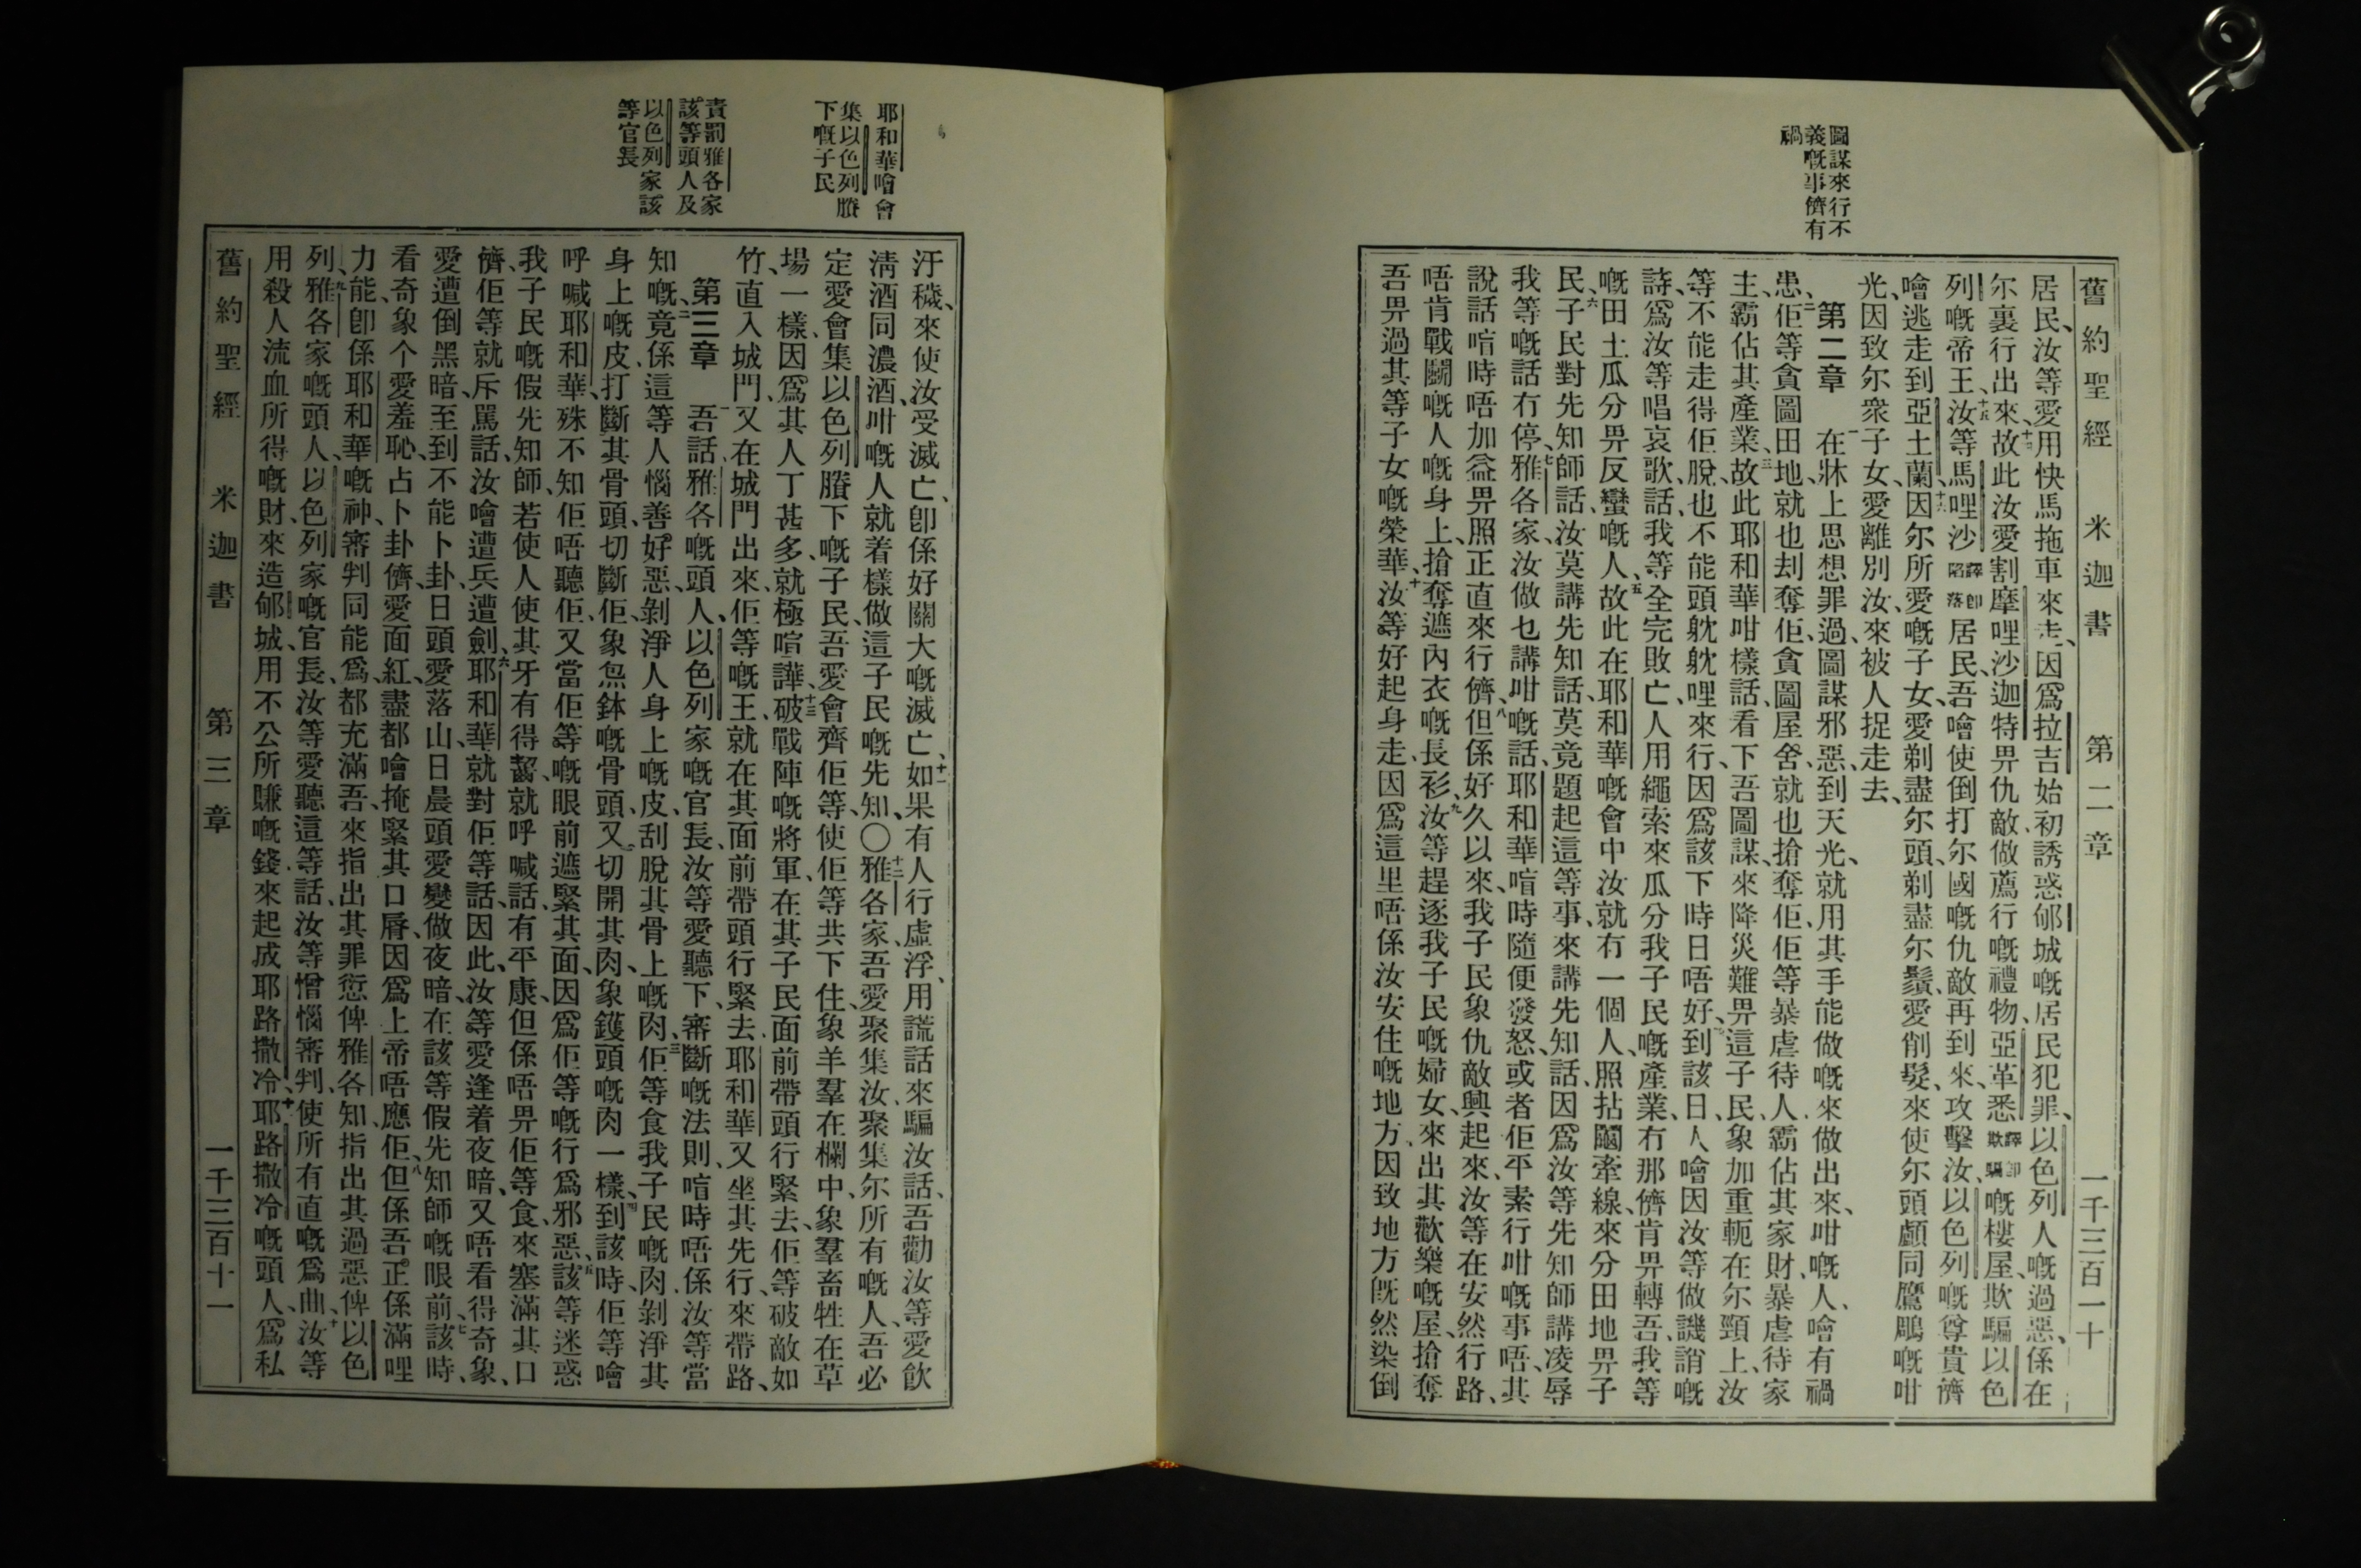 圖謀來行不
義嘅事儕有
禍
舊約聖經 米迦書 第二章 一千三百一十
居民、汝等愛用快馬拖車來走、因爲拉吉始初誘惑郇城嘅居民犯罪、以色列人嘅過惡、係在
尔裏行出來、十四故此汝愛割摩哩沙迦特畀仇敵、做薦行嘅禮物、亞革悉譯卽欺騙嘅樓屋、欺騙以色
列嘅帝王、十五汝等馬哩沙譯卽陷落居民、吾噲使倒打尔國嘅仇敵、再到來、攻擊汝、以色列嘅尊貴儕
噲逃走到亞土蘭、十六因尔所愛嘅子女、愛剃盡尔頭、剃盡尔鬚、愛削髮、來使尔頭顱同鷹鵰嘅咁
光、因致尔衆子女、愛離別汝、來被人捉走去、
第二章 一在牀上思想罪過、圖謀邪惡、到天光、就用其手能做嘅來做出來、咁嘅人、噲有禍
患、二佢等貪圖田地、就也刦奪佢、貪圖屋舍、就也搶奪佢、佢等暴虐待人、霸佔其家財、暴虐待家
主、霸佔其產業、三故此耶和華咁樣話、看下吾圖謀、來降災難畀這子民、象加重軛在尔頸上、汝
等不能走得佢脫、也不能頭躭躭哩來行、因爲該下時日唔好、四到該日、人噲因汝等做譏誚嘅
詩、爲汝等唱哀歌、話、我等全完敗亡、人用繩索來瓜分我子民嘅產業、冇那儕肯畀轉吾、我等
嘅田土瓜分畀反蠻嘅人、五故此在耶和華嘅會中、汝就冇一個人、照拈鬮牽線、來分田地畀子
民、六子民對先知師話、汝莫講先知話、莫竟題起這等事、來講先知話、因爲汝等先知師講凌辱
我等嘅話冇停、七雅各家、汝做乜講咁嘅話、耶和華喧時隨便發怒、或者佢平素行咁嘅事唔、其
說話喧時唔加益畀照正直來行儕、八但係好久以來、我子民象仇敵興起來、汝等在安然行路、
唔肯戰鬭嘅人嘅身上、搶奪遮內衣嘅長衫、九汝等趕逐我子民嘅婦女、來出其歡樂嘅屋、搶奪
吾畀過其等子女嘅榮華、十汝等好起身走、因爲這里唔係汝安住嘅地方、因致地方旣然染倒
耶和華噲會
集以色列賸
下嘅子民
責罰雅各家
該等頭人及
以色列家該
等官長
汙穢、來使汝受滅亡、卽係好關大嘅滅亡、十一如果有人行虛浮、用謊話來騙汝話、吾勸汝等愛飮
淸酒同濃酒、咁嘅人就着樣做這子民嘅先知、〇十二雅各家、吾愛聚集汝、聚集尔所有嘅人、吾必
定愛會集以色列賸下嘅子民、吾愛會齊佢等、使佢等共下住、象羊羣在欄中、象羣畜牲在草
場一樣、因爲其人丁甚多、就極喧譁、十三破戰陣嘅將軍、在其子民面前帶頭行緊去、佢等破敵如
竹、直入城門、又在城門出來、佢等嘅王、就在其面前帶頭行緊去、耶和華又坐其先行、來帶路、
第三章 一吾話、雅各嘅頭人、以色列家嘅官長、汝等愛聽下、審斷嘅法則、喧時唔係汝等當
知嘅、二竟係這等人惱善好惡、剝淨人身上嘅皮、刮脫其骨上嘅肉、三佢等食我子民嘅肉、剝淨其
身上嘅皮、打斷其骨頭、切斷佢、象𤇾鉢嘅骨頭、又切開其肉、象鑊頭嘅肉一樣、四到該時、佢等噲
呼喊耶和華、殊不知佢唔聽佢、又當佢等嘅眼前遮緊其面、因爲佢等嘅行爲邪惡、五該等迷惑
我子民嘅假先知師、若使人使其牙有得齧、就呼喊話、有平康、但係唔畀佢等食、來塞滿其口
儕、佢等就斥駡話、汝噲遭兵遭劍、六耶和華就對佢等話、因此、汝等愛逢着夜暗、又唔看得奇象、
愛遭倒黑暗、至到不能卜卦、日頭愛落山、日晨頭愛變做夜暗、在該等假先知師嘅眼前、七該時、
看奇象个愛羞恥、占卜卦儕愛面紅、盡都噲掩緊其口脣、因爲上帝唔應佢、八但係吾正係滿哩
力能、卽係耶和華嘅神、審判同能爲、都充滿吾、來指出其罪愆俾雅各知、指出其過惡俾以色
列、九雅各家嘅頭人、以色列家嘅官長、汝等愛聽這等話、汝等憎惱審判、使所有直嘅爲曲、十汝等
用殺人流血所得嘅財、來造郇城、用不公所賺嘅錢、來起成耶路撒冷、十一耶路撒冷嘅頭人、爲私
舊約聖經 米迦書 第三章 一千三百十一